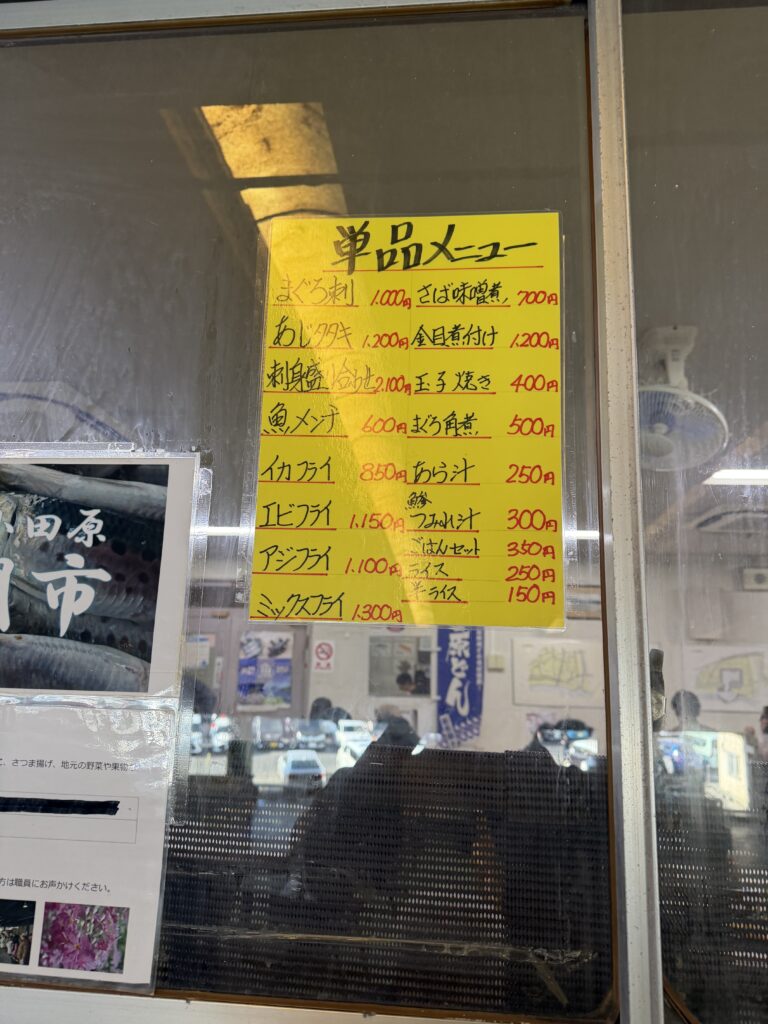 単品メニュー
まぐろ刺 1.000円
あじタタキ 1.200円
刺身盛り合わせ 2.100円
魚メンチ 600円
イカフライ 850円
エビフライ 1.150円
アジフライ 1.100円
ミックスフライ 1.300円
さば味噌煮 700円
金目煮付け 1.200円
玉子焼き 400円
まぐろ角煮 500円
あら汁 250円
つみれ汁 300円
ごはんセット 350円
ライス 250円
半ライス 150円
田原
市
、さつま揚げ、地元の野菜や果物
方は職員にお声かけください。
どん